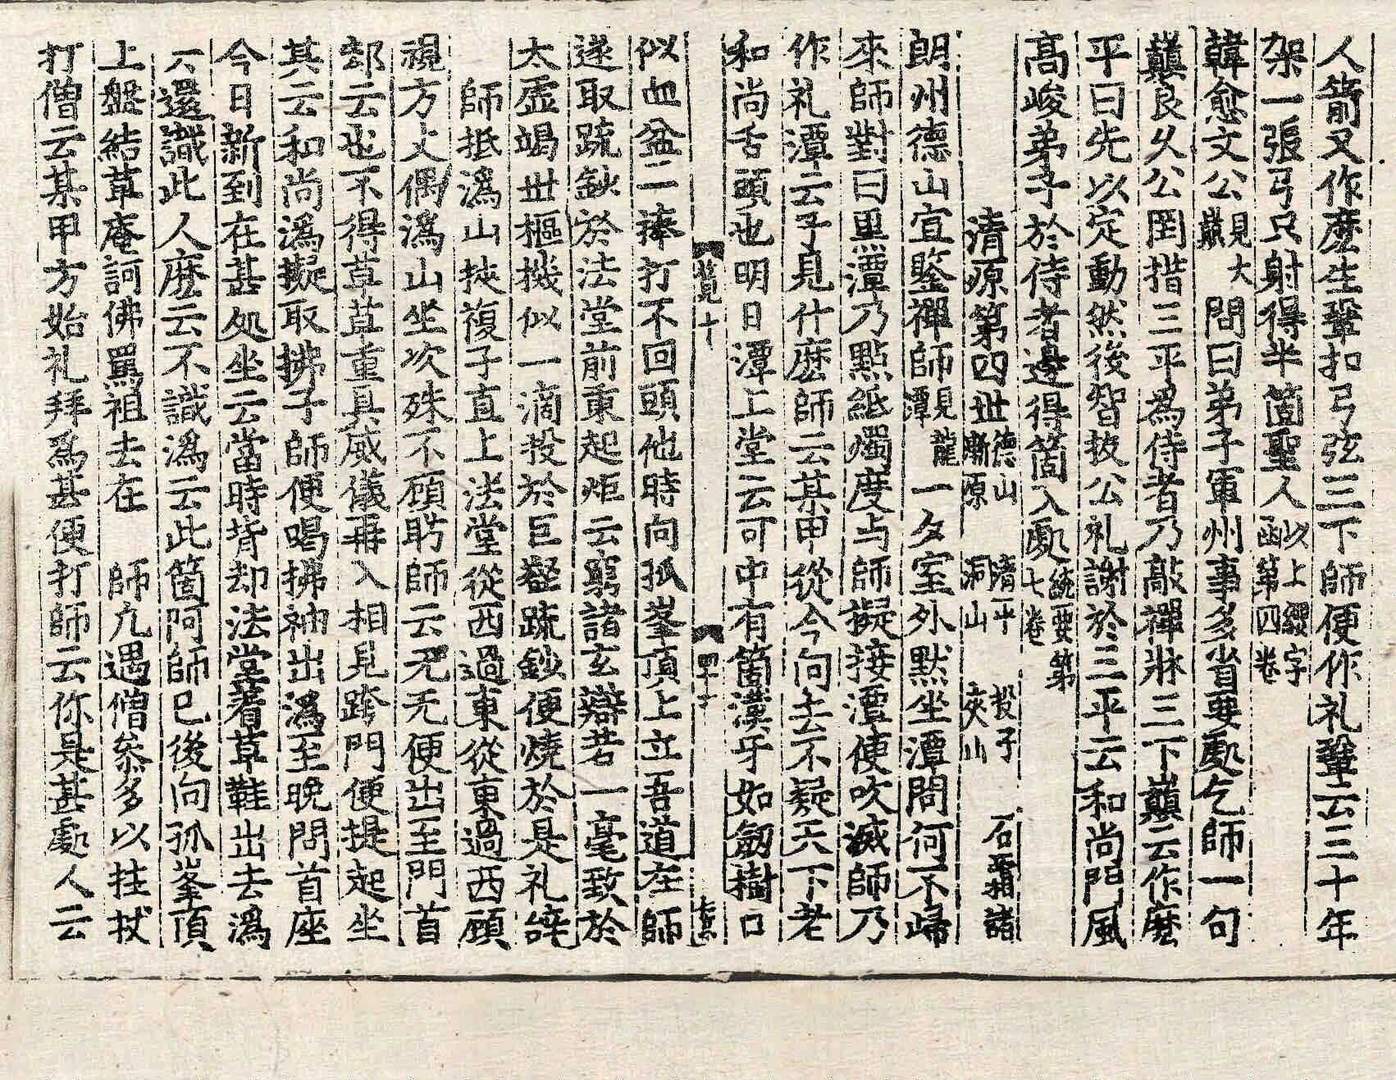 人箭又作麽生鞏扣弓弦三下師便作礼鞏云三十年
架一張弓只射得半箇聖人以上纓字函第四卷
韓愈文公見大巓問曰弟子軍州事多省要處乞師一句
巓良久公罔措三平爲侍者乃敲禪牀三下巓云作麽
平曰先以定動然後智拔公礼謝於三平云和尚門風
高峻弟子於侍者邊得箇入處統要第七卷
清源第四世德山 清平 投子 石霜諸 漸源 洞山 夾山
朗州德山宣鑒禪師見龍潭一夕室外默坐潭問何不歸
來師對曰黑潭乃點紙燭度与師擬接潭便吹滅師乃
作礼潭云子見什麽師云某甲從今向去不疑天下老
和尚舌頭也明日潭上堂云可中有箇漢牙如劒樹口
覽十
似血盆一棒打不回頭他時向孤峯頂上立吾道在師
遂取䟽鈔於法堂前秉起炬云窮諸玄辯若一毫致於
太虛竭世樞機似一滴投於巨壑䟽鈔便燒於是礼辝
師抵潙山挾複子直上法堂從西過東從東過西顧
視方丈偶潙山坐次殊不顧眄師云无无便出至門首
却云也不得草草重具威儀再入相見跨門便提起坐
具云和尚潙擬取拂子師便喝拂袖出潙至晩問首座
今日新到在甚処坐云當時背却法堂著草鞋出去潙
云還識此人麽云不識潙云此箇阿師已後向孤峯頂
上盤結草庵訶佛罵祖去在 師凢遇僧叅多以拄杖
打僧云某甲方始礼拜爲甚便打師云你是甚處人云